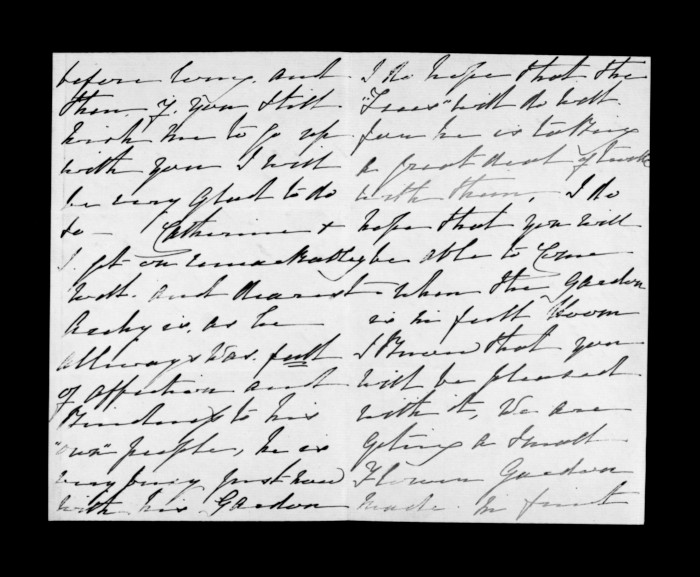 before long. and
then if you still
wish me to go up
with you I will
be very glad to do
so — Catherine +
I get on remarkabley
well. and dearest
Archy is. as he
allways was. full
of affection and
Kindness to his
"own" people, he is
very busy just now
with his Garden
I do hope that the
"Trees" will do well.
for he is taking
a great deal of trouble
with them. I do
hope that you will
be able to Come
when the garden
is in full bloom
I Know that you
will be pleased
with it, We are
geting a small
Flower Garden
made. in front